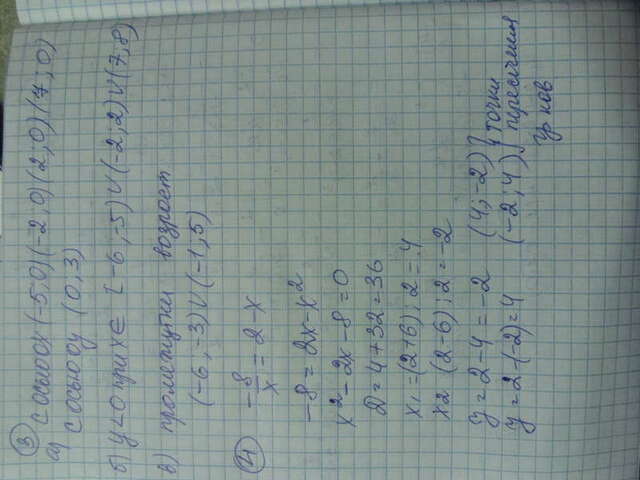 3
а) с осью ох (-5,0) (-2;0) (2;0) (7;0)
с осью оу (0,3)
б) y<0 при x∈ [-6,-5)∪(-2;2)∪(7,8)
в) промежутки возрост
(-6,-3)∪(-1,5)
4
-8/x = 2-x
-8 = 2x-x²
x²-2x-8=0
D=4+32=36
x₁=(2+6);2=4
x₂ (2-6);2=-2
y=2-4=-2 (4;-2) } точки
y=2-(-2)=4 (-2;4) пересечения